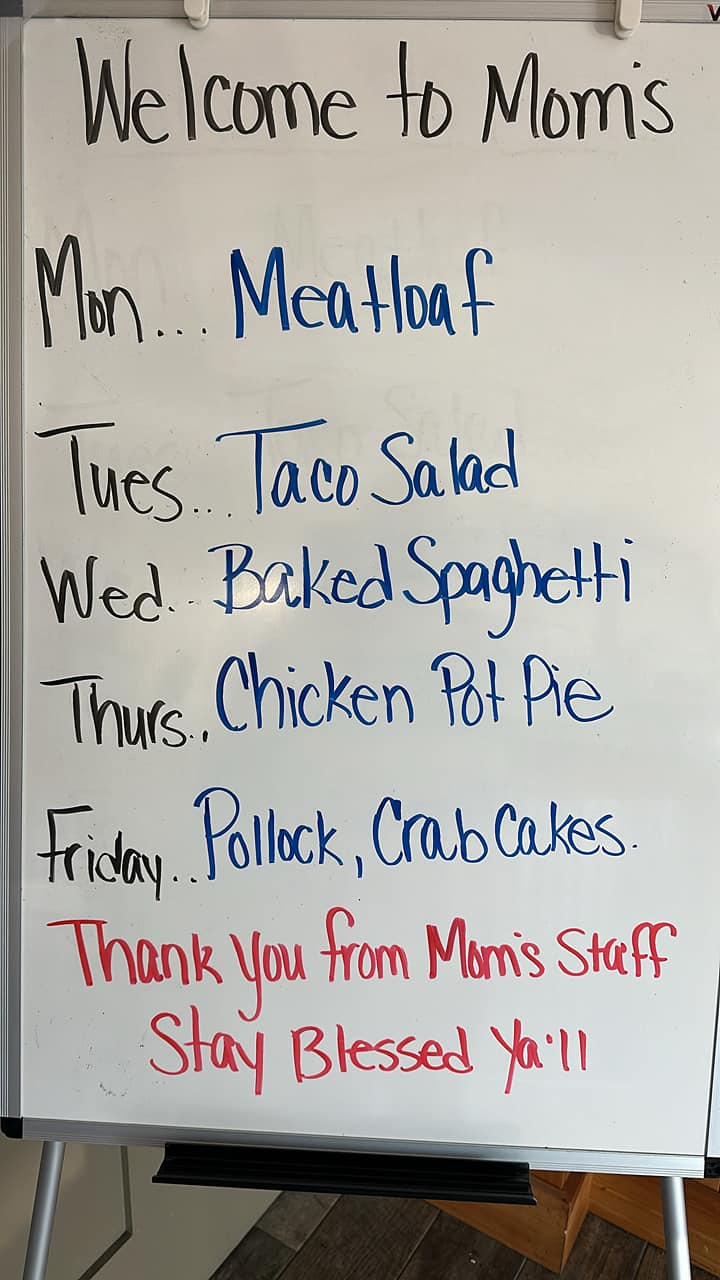 Welcome to Mom's
Mon... Meatloaf
Tues... Taco Salad
Wed... Baked Spaghetti
Thurs... Chicken Pot Pie
Friday... Pollock, Crab Cakes.
Thank you from Mom's Staff
Stay Blessed Ya'll